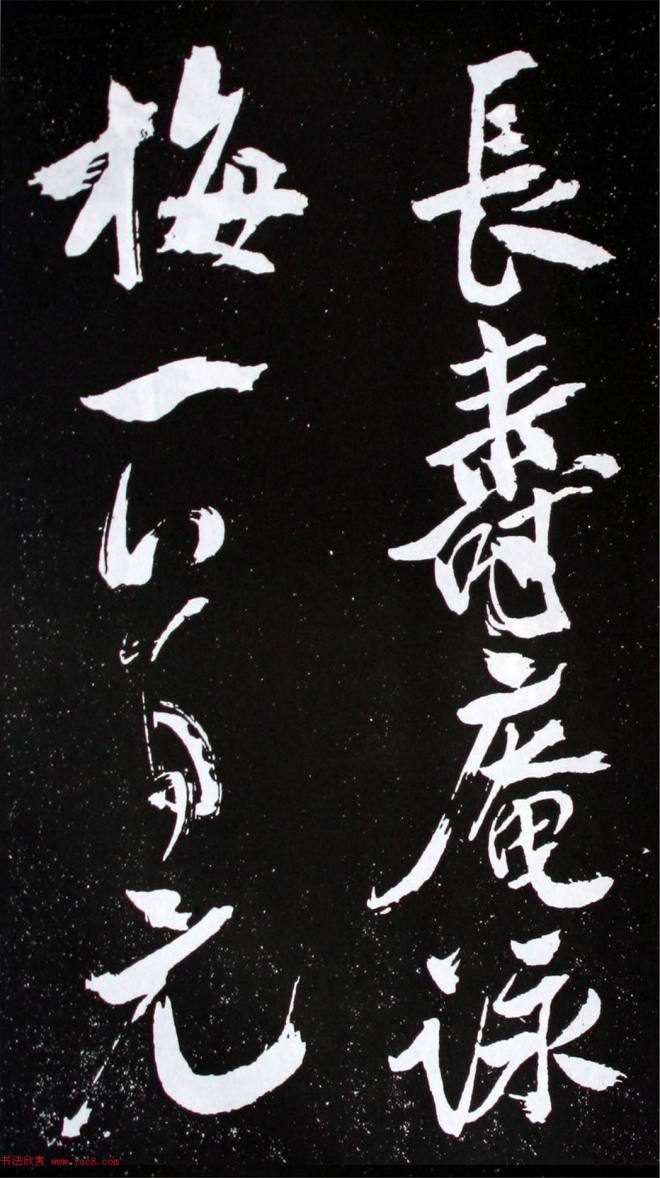 長壽庵詠
梅百首元
书法欣赏 www.yac8.com